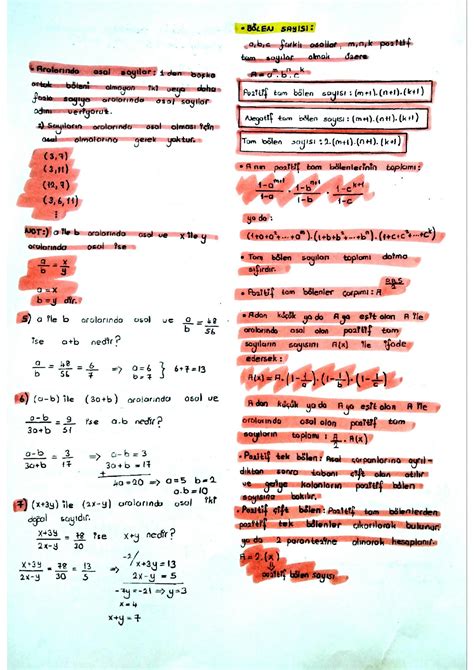 • Aralarında asal sayılar: 1 den başka
ortak böleni olmayan iki veya daha
fazla sayıya aralarında asal sayılar
adını veriyoruz.
Sayıların aralarında asal olması için
asal olmalarına gerek yoktur.
(3, 7)
(3, 11)
(12, 7)
(3, 6, 11)
⋮
NOT:) a ile b aralarında asal ve x ile y
aralarında asal ise
a/b = x/y
a = x
b = y dir.
5) a ile b aralarında asal ve a/b = 48/56
ise a+b nedir?
a/b = 48/56 = 6/7 => a=6 b=7 } 6+7=13
6) (a-b) ile (3a+b) aralarında asal ve
a-b/3a+b = 9/51 ise a.b nedir?
a-b/3a+b = 3/17 => a-b = 3
3a+b = 17
4a=20 => a=5 b=2
a.b=10
7) (x+3y) ile (2x-y) aralarında asal iki
doğal sayıdır.
x+3y/2x-y = 78/30 ise x+y nedir?
x+3y/2x-y = 78/30 = 13/5 => -2/ x+3y = 13
2x-y = 5
-7y=-21 => y=3
x=4
x+y=7
• BÖLEN SAYISI:
a,b,c farklı asallar, m,n,k pozitif
tam sayılar olmak üzere
A = a^m.b^n.c^k
Pozitif tam bölen sayısı: (m+1).(n+1).(k+1)
Negatif tam bölen sayısı: (m+1).(n+1).(k+1)
Tam bölen sayısı: 2.(m+1).(n+1).(k+1)
• A nın pozitif tam bölenlerinin toplamı:
1-a^m+1/1-a . 1-b^n+1/1-b . 1-c^k+1/1-c
ya da:
(1+a+a²+...+a^m).(1+b+b²+...+b^n).(1+c+c²+...+c^k)
• Tam bölen sayıları toplamı daima
sıfırdır.
• Pozitif tam bölenler çarpımı: A
• Adan küçük ya da A ya eşit olan A ile
aralarında asal olan pozitif tam
sayıların sayısını A(x) ile ifade
edersek:
A(x) = A.(1-1/a).(1-1/b).(1-1/c)
A dan küçük ya da A ya eşit olan A ile
aralarında asal olan pozitif tam
sayıların toplamı: A/2 . A(x)
• Pozitif tek bölen: Asal çarpanlarına ayrıl-
dıktan sonra tabanı çift olan atılır
ve geriye kalanların pozitif bölen
sayısına bakılır.
• Pozitif çift bölen: Pozitif tam bölenlerden
pozitif tek bölenler çıkarılarak bulunur.
ya da 2 parantezine alınarak hesaplanır.
A = 2.(x)
pozitif bölen sayısı